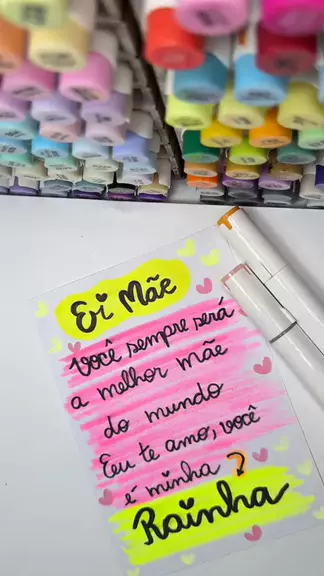 Ei Mãe
Você sempre será
a melhor mãe
do mundo
Eu te amo, você
é minha
Rainha